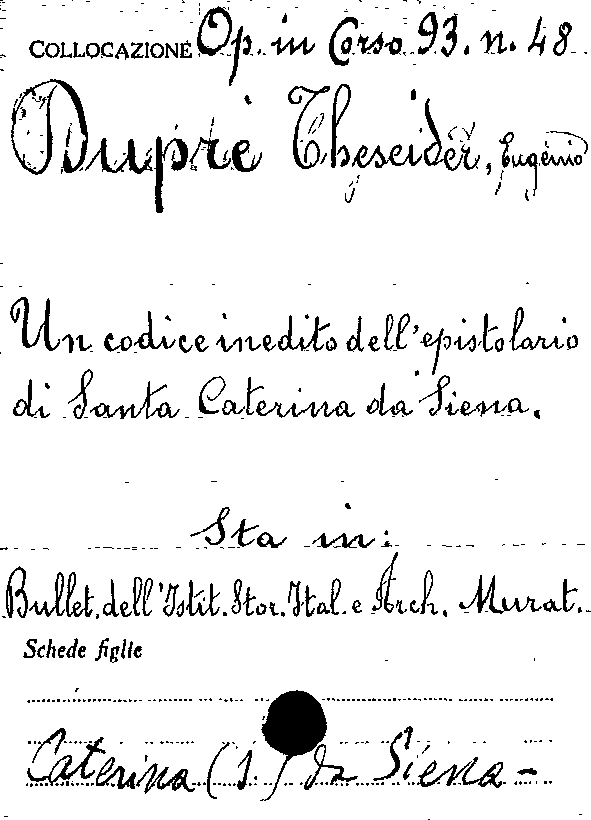 COLLOCAZIONE Op. in Corso 93. n. 48
Duprè Theseider, Eugenio
Un codice inedito dell'epistolario
di Santa Caterina da Siena.
Sta in:
Bullet. dell'Istit. Stor. Ital. e Arch. Murat.
Schede figlie
Caterina (s.) da Siena -